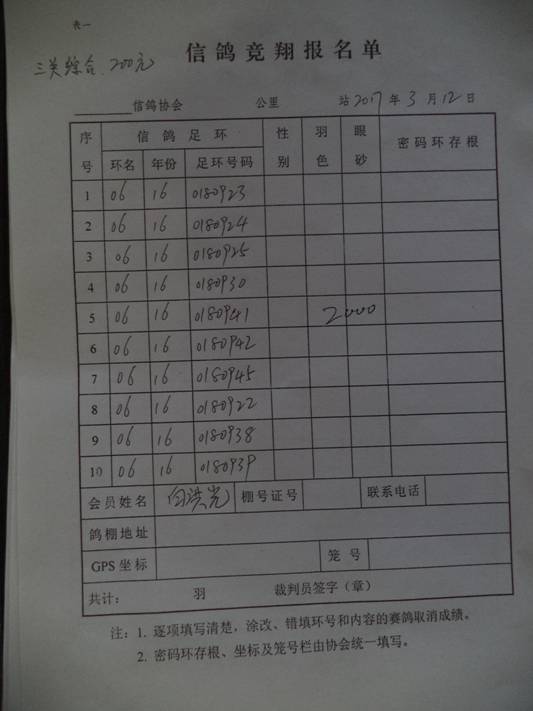 表一
三关综合 200元
信鸽竞翔报名单
信鸽协会 公里 站2017年3月12日
序号 信鸽足环 性别 羽色 眼砂 密码环存根
环名 年份 足环号码
1 06 16 0180923
2 06 16 0180924
3 06 16 0180925
4 06 16 0180930
5 06 16 0180941 2000
6 06 16 0180942
7 06 16 0180945
8 06 16 0180922
9 06 16 0180938
10 06 16 0180939
会员姓名 白洪光 棚号证号 联系电话
鸽棚地址
GPS坐标 笼号
共计: 羽 裁判员签字(章)
注:1. 逐项填写清楚,涂改、错填环号和内容的赛鸽取消成绩。
2. 密码环存根、坐标及笼号栏由协会统一填写。